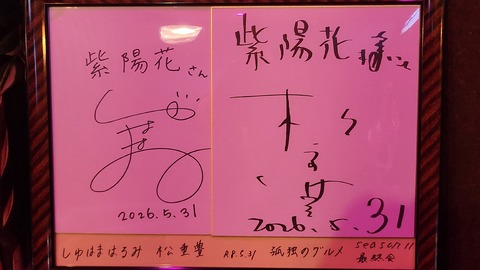 紫陽花さん
しゅはま
2026.5.31
紫陽花様江
松重豊
2026.5.31
しゅはまはるみ 松重豊 R8.5.31 孤独のグルメ season11
最終会